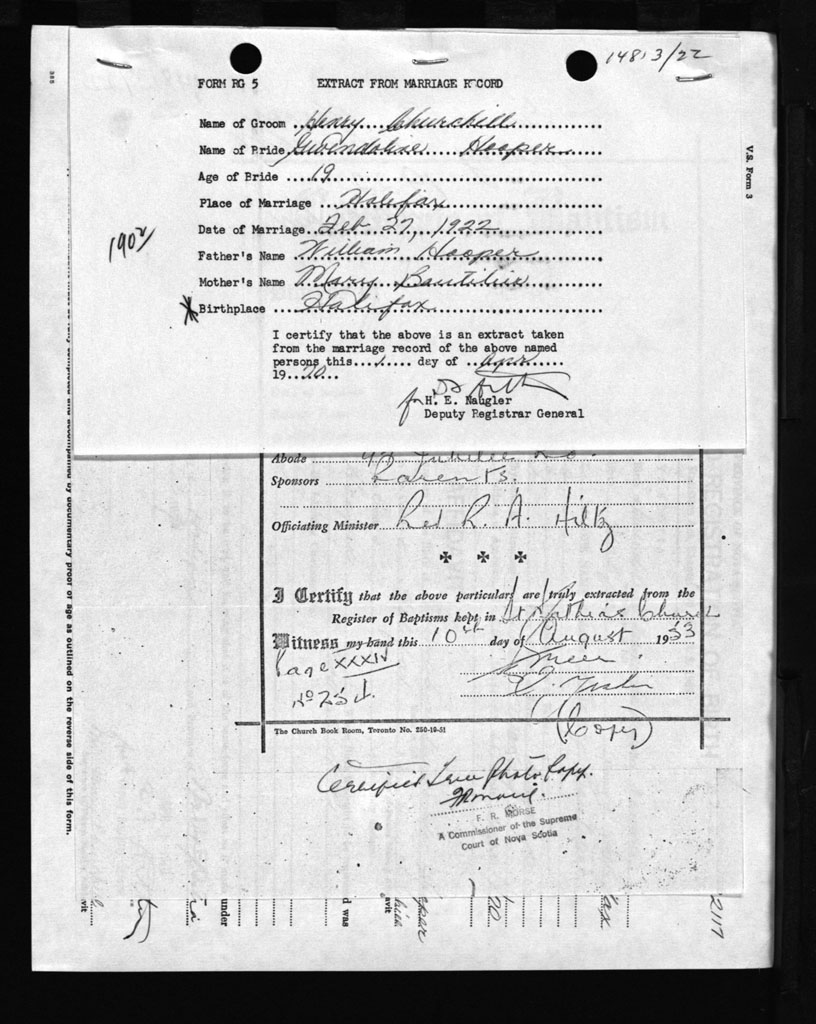 148,3/22
FORM RG 5 EXTRACT FROM MARRIAGE RECORD
Name of Groom Henry Churchill
Name of Bride Gwendoline Hooper
Age of Bride 19
Place of Marriage Halifax
Date of Marriage Feb 27, 1922
1902
Father's Name William Hooper
Mother's Name Mary
Birthplace Halifax
I certify that the above is an extract taken
from the marriage record of the above named
persons this 1 day of Apr
1970
for H. E. Naugler
Deputy Registrar General
V.S. Form 3
Abode Jubilee
Sponsors Parents.
Officiating Minister Rev R. A. Hiltz
I Certify that the above particulars are truly extracted from the
Register of Baptisms kept in St Mathias Church
Witness my hand this 10st day of August 1953
Page XXXIV
No 251.
(Copy)
The Church Book Room, Toronto No. 250-19-51
Certified True Photo Copy.
F. R. MORSE
A Commissioner of the Supreme
Court of Nova Scotia
accompanied by documentary proof of age as outlined on the reverse side of this form.
under
d was
avit
2117